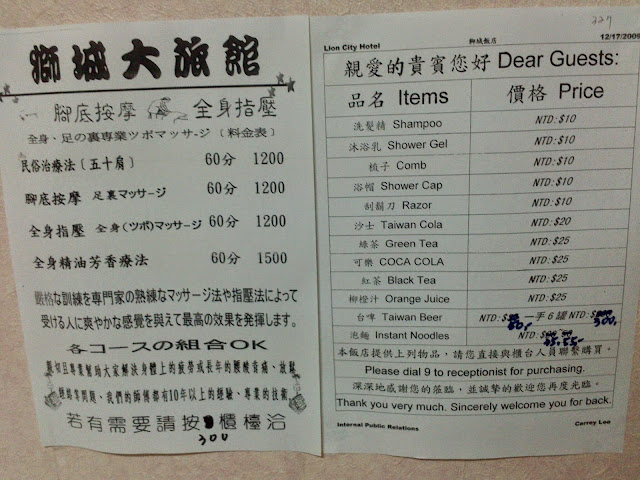 獅城大旅館
腳底按摩 全身指壓
全身、足の裏専業ツボマッサ-ジ〔料金表〕
民俗治療法〔五十肩〕 60分 1200
腳底按摩 足裏マッサージ 60分 1200
全身指壓 全身(ツボ)マッサージ 60分 1200
全身精油芳香療法 60分 1500
嚴格な訓練を專門家の熟練なマッサージ法や指壓法によって
受ける人に爽やかな感覺を與えて最高の效果を発揮します。
各コースの組合OK
且專業幫助大家解決身體上的疲勞或長年的腰酸背痛、
問題、我們的師傅都有10年以上的經驗、專業的技術
若有需要請按 櫃檯洽
300
227
Lion City Hotel 獅城飯店 12/17/2006
親愛的貴賓您好 Dear Guests:
品名 Items 價格 Price
洗髮精 Shampoo NTD:$10
沐浴乳 Shower Gel NTD:$10
梳子 Comb NTD:$10
浴帽 Shower Cap NTD:$10
刮鬍刀 Razor NTD:$10
沙士 Taiwan Cola NTD:$20
綠茶 Green Tea NTD:$25
可樂 COCA COLA NTD:$25
紅茶 Black Tea NTD:$25
柳橙汁 Orange Juice NTD:$25
台啤 Taiwan Beer NTD:$ 60.- 一手6罐 NTD:$ 300.-
泡麵 Instant Noodles NTD:$ 45.-55.-
本飯店提供上列物品，請您直接與櫃台人員聯繫購買。
Please dial 9 to receptionist for purchasing.
深深地感謝您的蒞臨，並誠摯的歡迎您再度光臨。
Thank you very much. Sincerely welcome you for back.
Internal Public Relations Carrey Lee